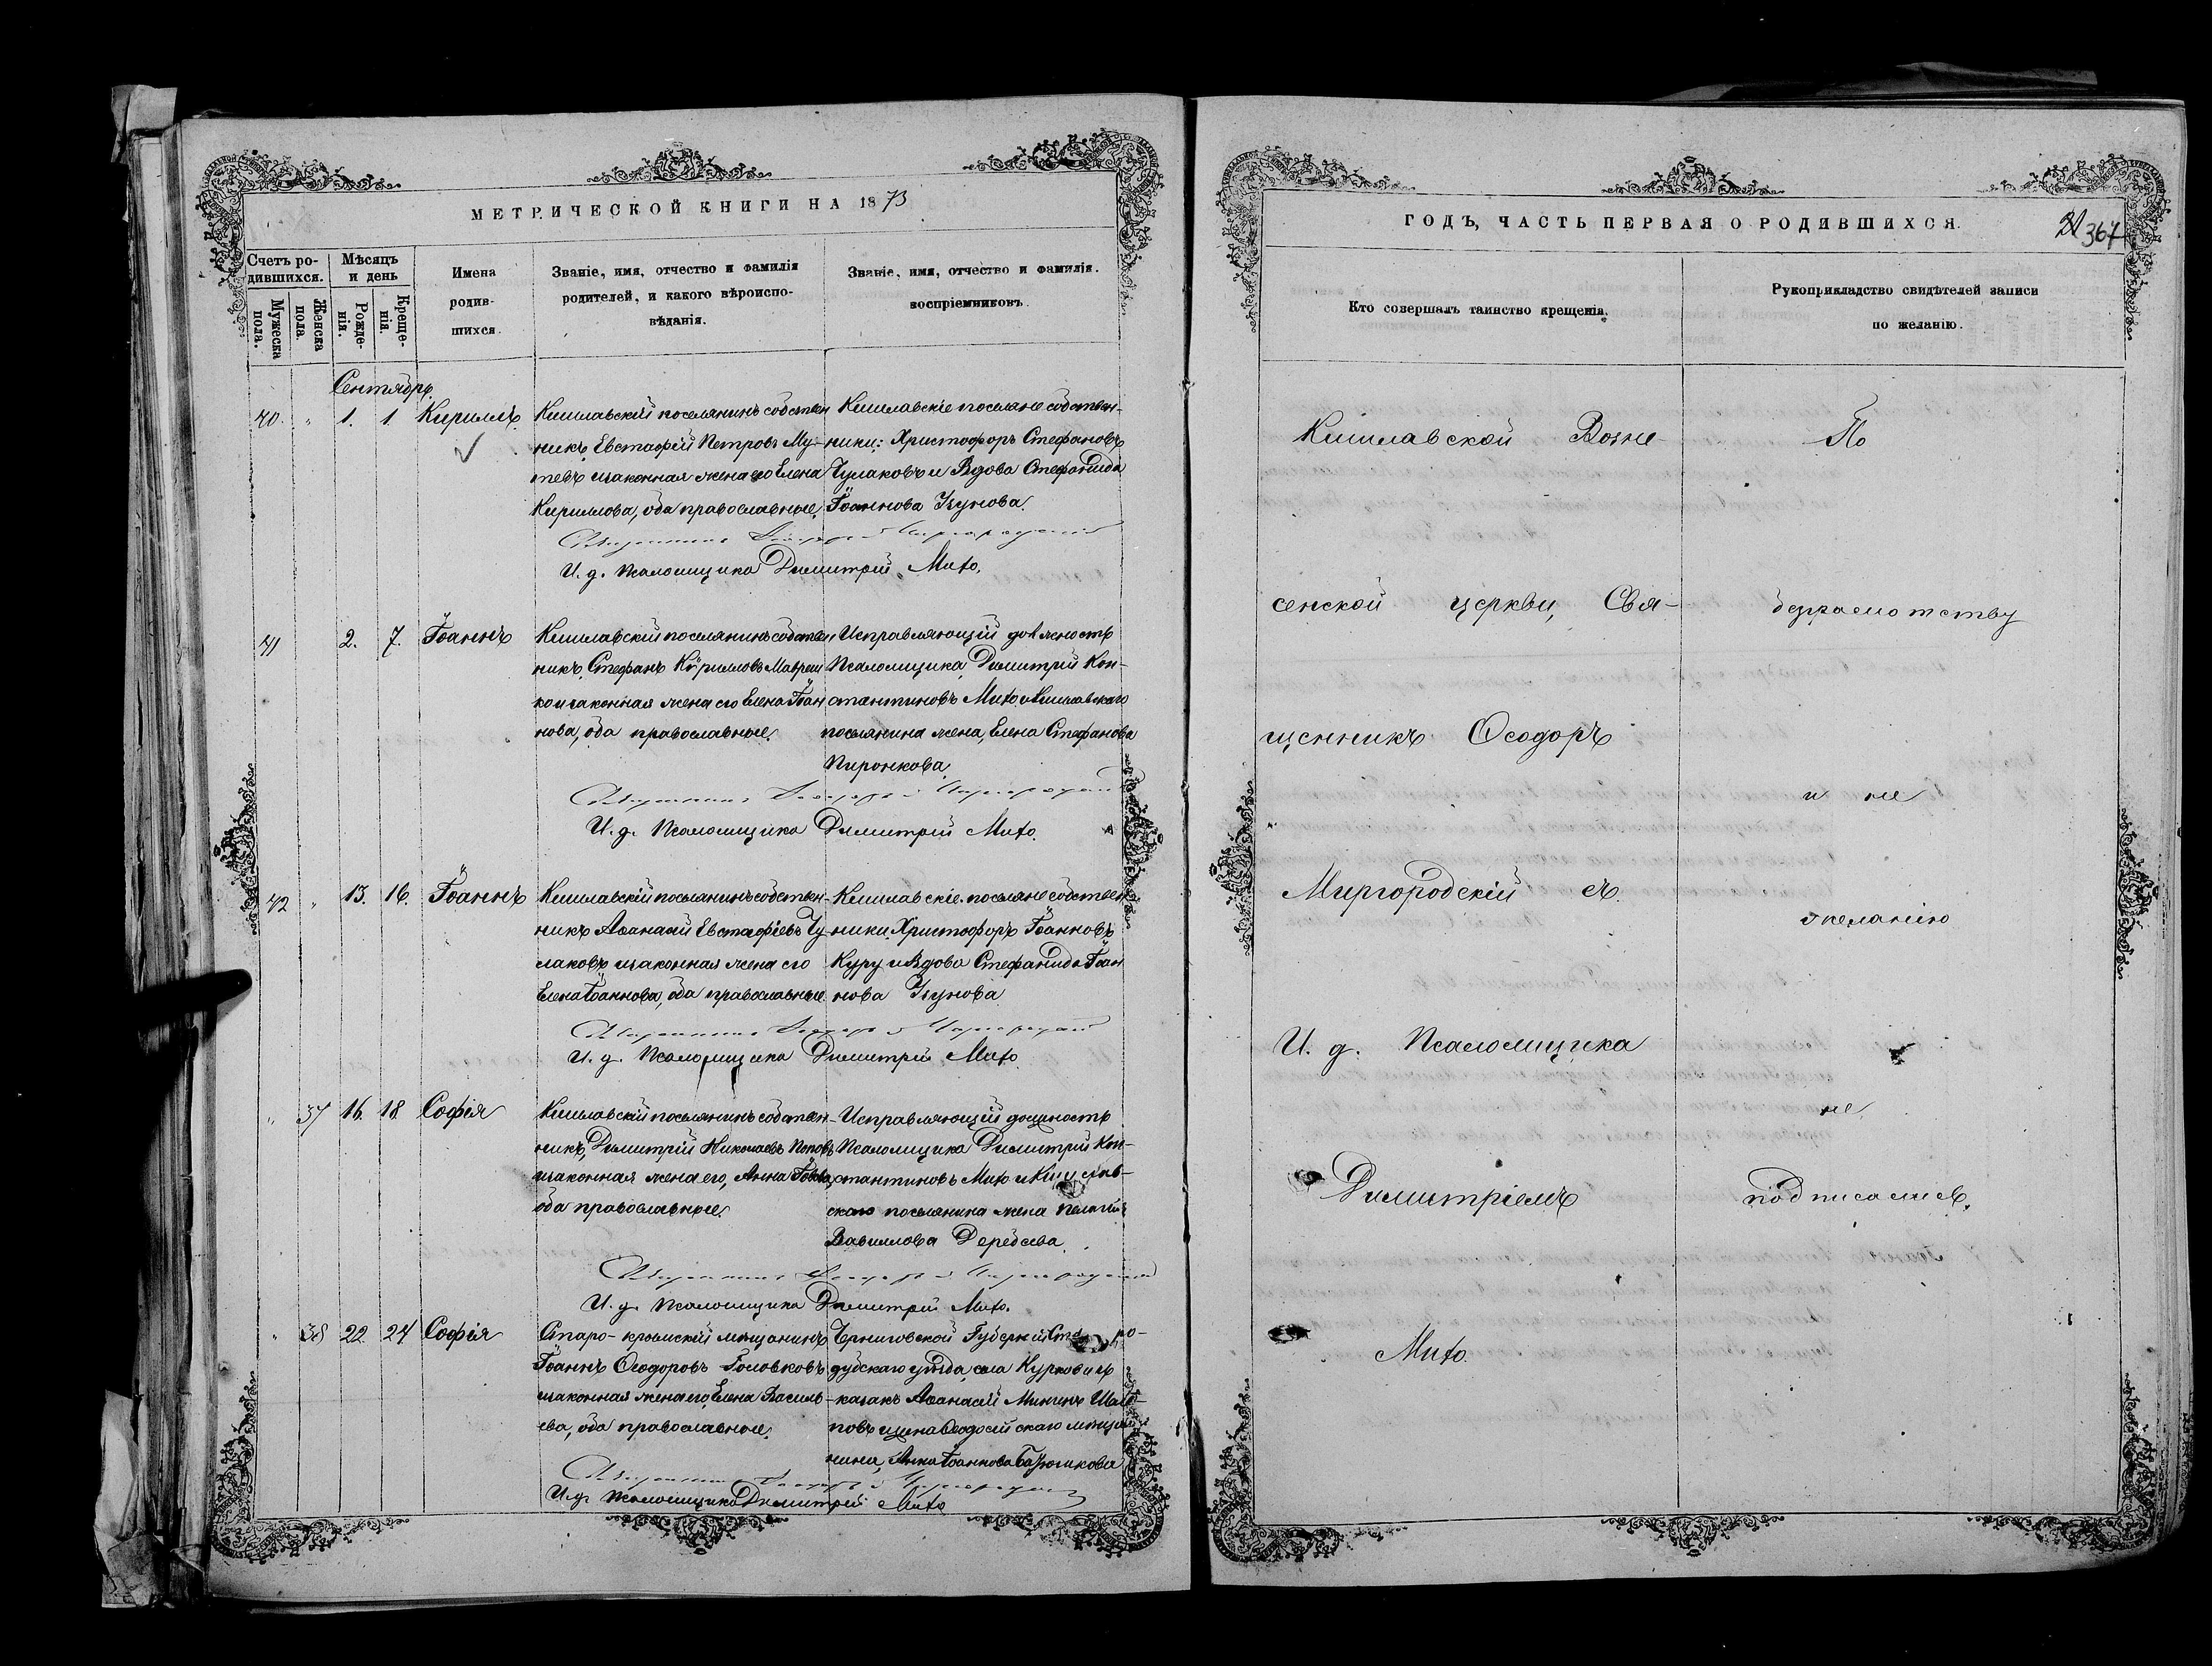 МЕТРИЧЕСКОЙ КНИГИ НА 1873
Счетъ ро-
дившихся.
Мужеска
пола.
Женска
пола.
Мѣсяцъ
и день
Рожде-
нія.
Креще-
нія.
Имена
родив-
шихся.
Званіе, имя, отчество и фамилія
родителей, и какого вѣроиспо-
вѣданія.
Званіе, имя, отчество и фамилія.
воспріемниковъ.
Сентябрь.
40. " 1. 1. Кириллъ.
Кишлавскій поселянинъ собствен
никъ, Евстафій Петровъ Му-
тевъ изаконная жена его Елена
Кириллова, оба православные.
Кишлавскіе поселяне собствен-
ники: Христофоръ Стефановъ
Чулаковъ и Вдова Стефанида
Іоаннова Узунова.
Священникъ Ѳеодоръ Миргородскій
И. д. Псаломщика Димитрій Мито.
41 2. 7. Іоаннъ
Кишлавскій поселянинъ собствен
никъ, Стефанъ Кѵрилловъ Мавреш
ко изаконная жена его Елена Іоан
нова, оба православные.
Исправляющій должность
Псаломщика, Димитрій Кон-
стантиновъ Мито и Кишлавскаго
поселянина жена, Елена Стефанова
Пиронкова.
Священникъ Ѳеодоръ Миргородскій
И. д. Псаломщика Димитрій Мито.
42 " 13. 16. Іоаннъ
Кишлавскій поселянинъ собствен-
никъ Аѳанасій Евстафіевъ Чу-
лаковъ изаконная жена его
Елена Іоаннова, оба православные
Кишлавскіе поселяне собствен
ники, Христофоръ Іоанновъ
Куру и Вдова Стефанида Іоан
нова Узунова
Священникъ Ѳеодоръ Миргородскій
И. д. Псаломщика Димитрій Мито
" 37 16. 18 Софія
Кишлавскій поселянинъ собствен-
никъ, Димитрій Николаевъ Поповъ
изаконная жена его, Анна
оба православные.
Исправляющій должность
Псаломщика Димитрій Кон-
стантиновъ Мито и Кишлав-
скаго поселянина жена
Вавилова Деребеева.
Священникъ Ѳеодоръ Миргородскій
И. д. Псаломщика Димитрій Мито.
" 38 22 24 Софія
Старо-крымскій мѣщанинъ
Іоаннъ Ѳеодоровъ Головковъ
изаконная жена его, Елена Василь-
ева, оба православные.
Черниговской Губерніи Ста ро-
дубскаго уѣзда, села Курковичъ
казакъ Аѳанасій Мининъ
повъ ижена Ѳеодосійскаго мѣщан
нина, Анна Іоаннова
Священникъ Ѳеодоръ Миргородскій
И. д. Псаломщика Димитрій Мито
ГОДЪ, ЧАСТЬ ПЕРВАЯ О РОДИВШИХСЯ.
367
Кто совершалъ таинство крещенія.
Рукоприкладство свидѣтелей записи
по желанію.
Кишлавской Возне-
сенской церкви, Свя-
щенникъ Ѳеодоръ
Миргородскій съ
И. д. Псаломщика
Димитріемъ
Мито.
По
безграмотству
и не
желанію
не
подписались.